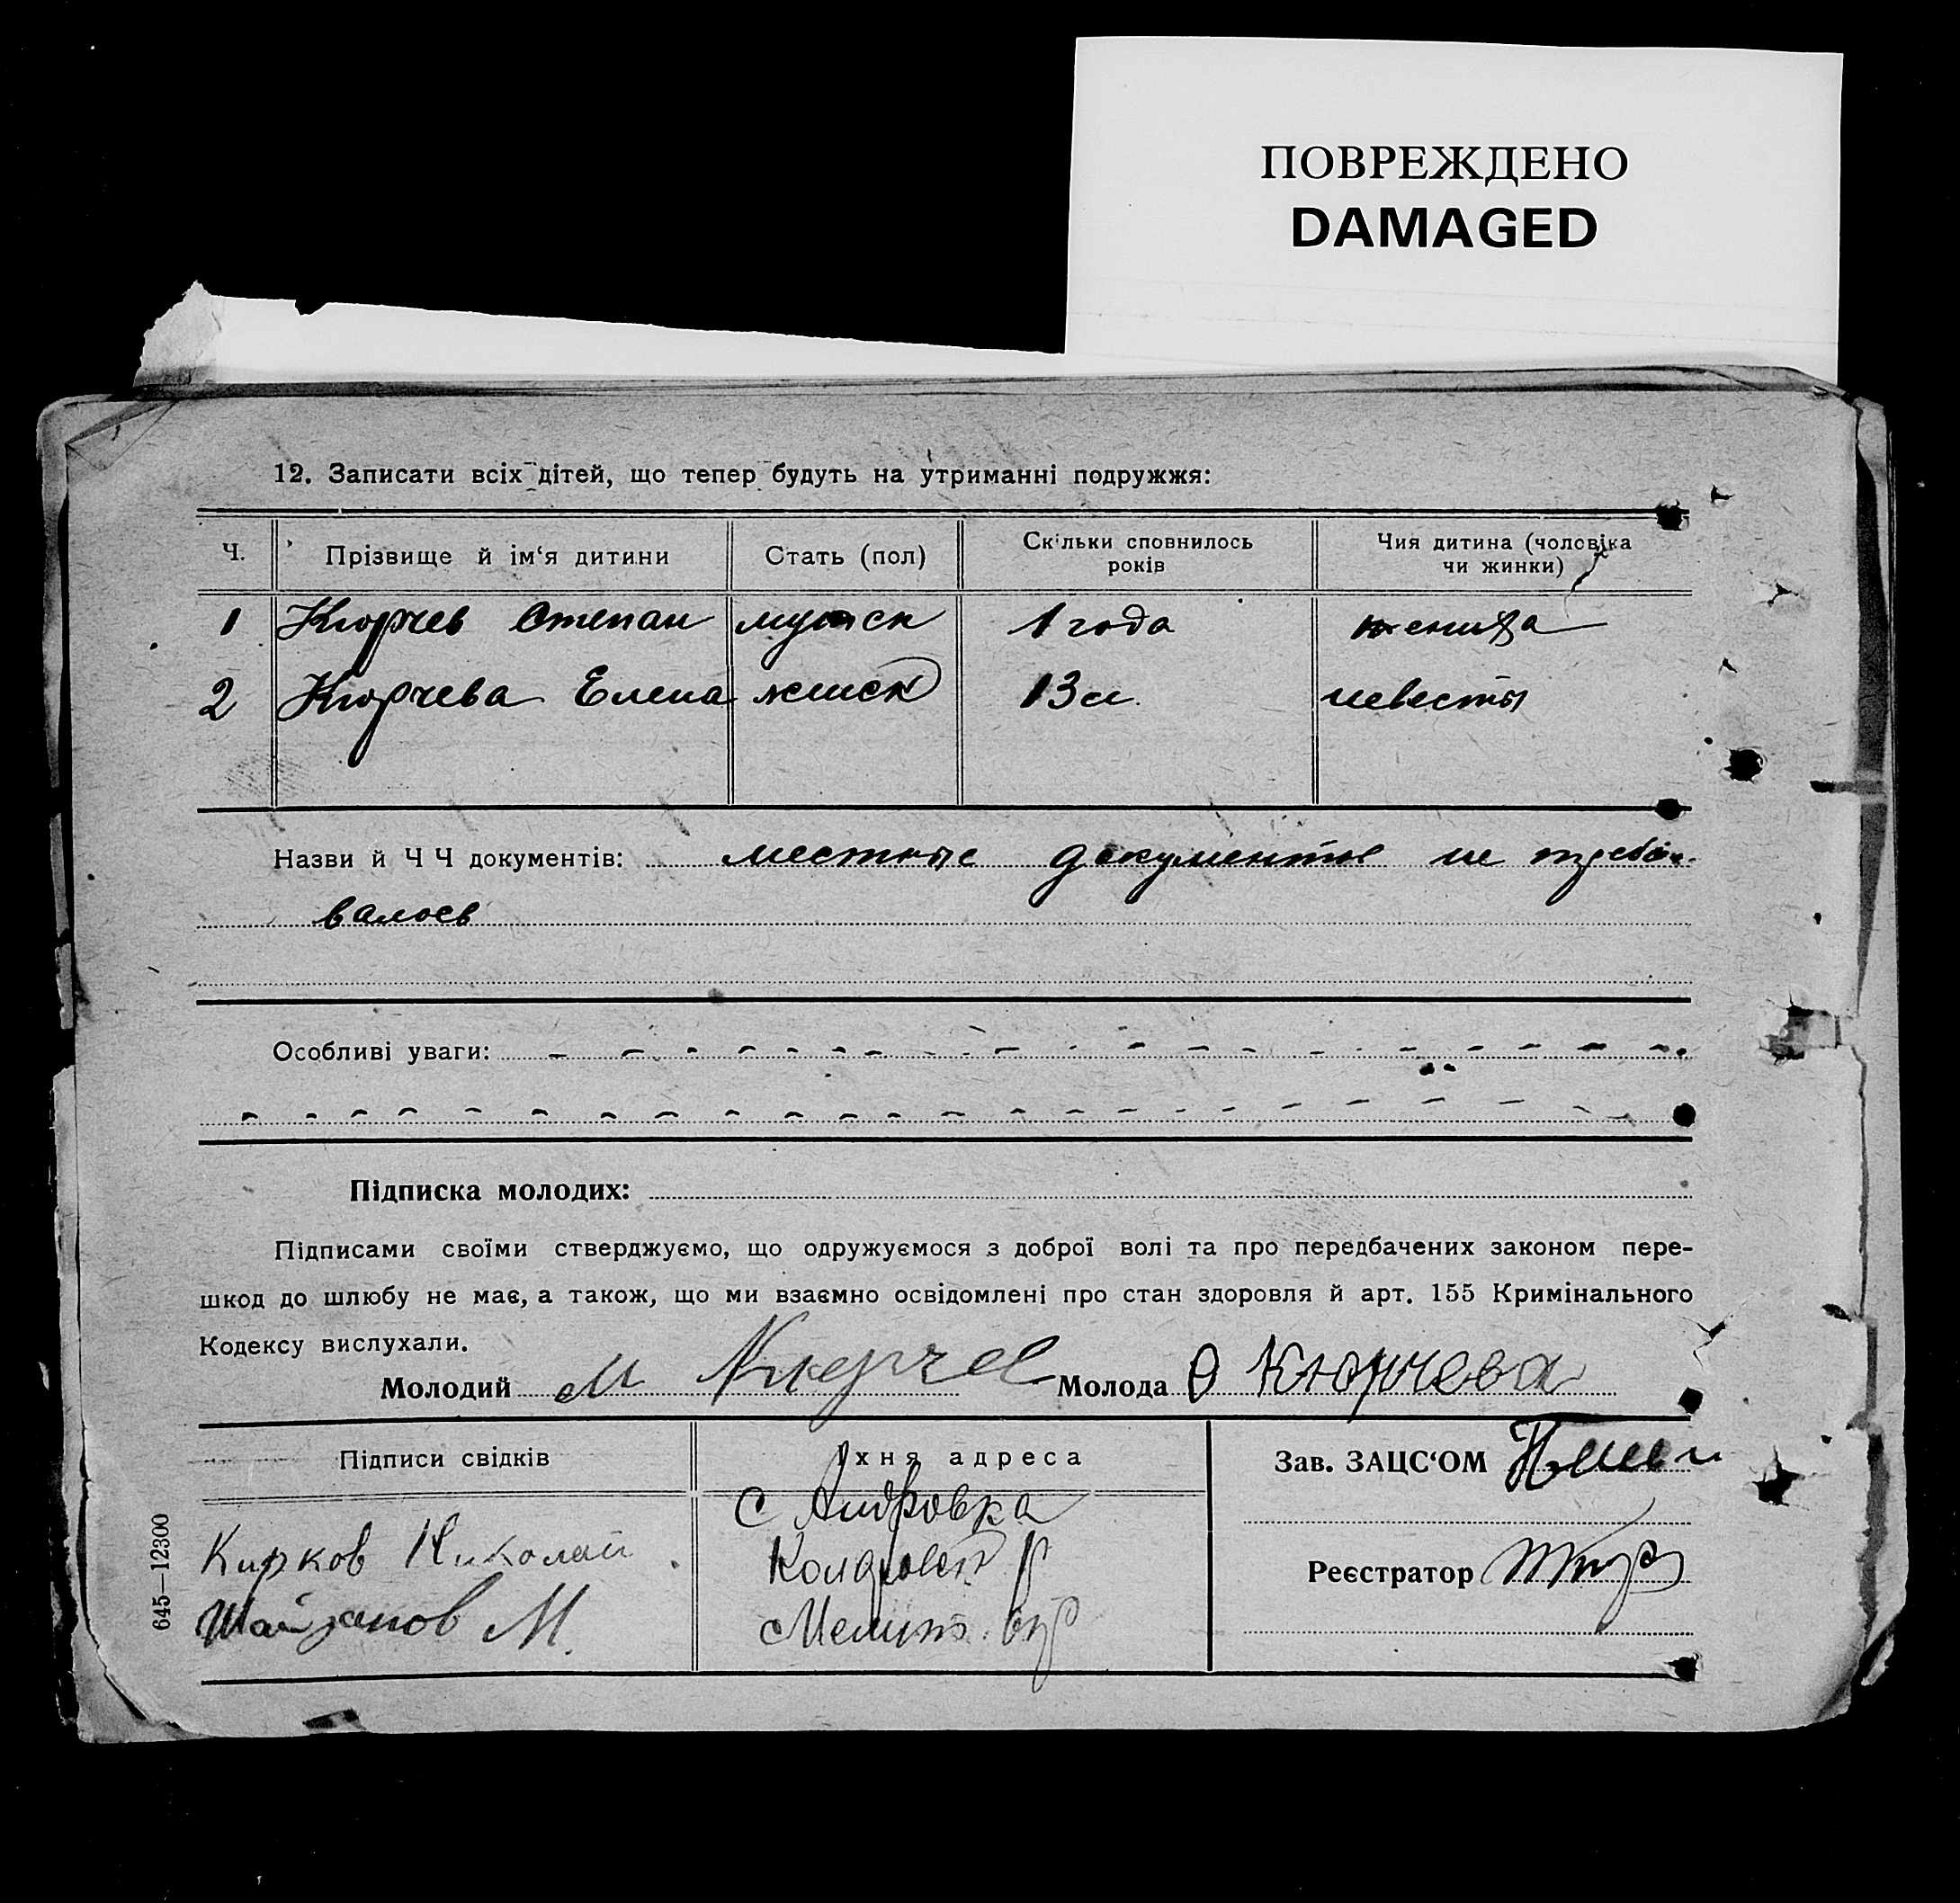 ПОВРЕЖДЕНО
DAMAGED
12. Записати всіх дітей, що тепер будуть на утриманні подружжя:
Ч. Прізвище й ім‘я дитини Стать (пол) Скільки сповнилось років Чия дитина (чоловіка чи жинки)
1 Кюрчев Степан мужск 1 года жениха
2 Кюрчева Елена женск 13 невесты
Назви й Ч Ч документів: местные документы не требо-
валось
Особливі уваги:
Підписка молодих:
Підписами своїми стверджуємо, що одружуємося з доброї волі та про передбачених законом пере-
шкод до шлюбу не має, а також, що ми взаємно освідомлені про стан здоровля й арт. 155 Кримінального
Кодексу вислухали.
Молодий М Кюрчев Молода Кюрчева
Підписи свідків Їхня адреса Зав. ЗАЦС‘ОМ
с Андровка
Кирков Николай
Реєстратор
М.
Мелит. окр
645—12300